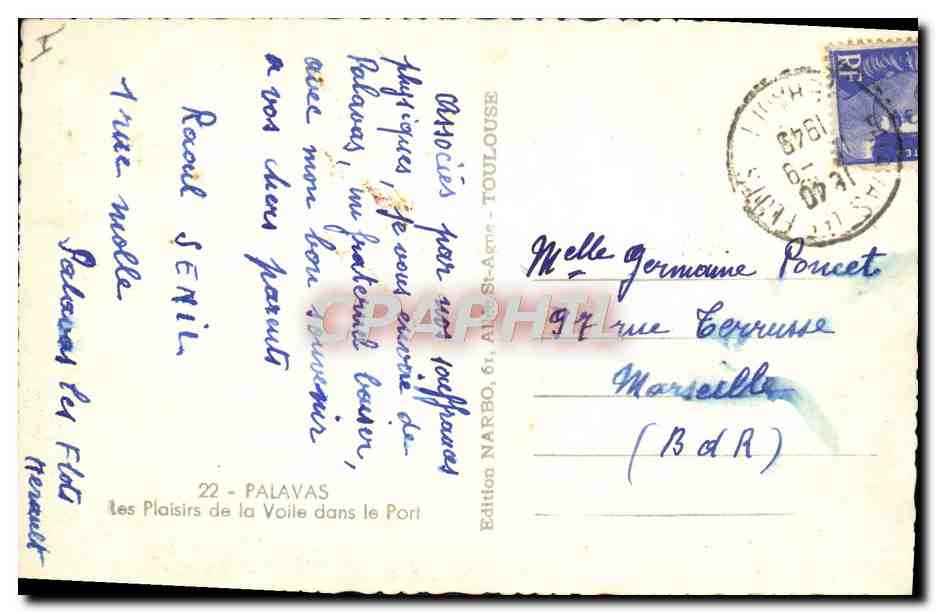 Associés par nos souffrances
physiques, je vous envoie de
Palavas, un fraternel baiser,
avec mon bon souvenir
a vos chers parents
Raoul SENIL
1 rue molle
Palavas les Flots
Herault
22 - PALAVAS
Les Plaisirs de la Voile dans le Port
Edition NARBO, 61, Allée St-Agne - TOULOUSE
CPAPHIL
RF
1949
Melle Germaine Poncet
97 rue Terrusse
Marseille
(B d R)